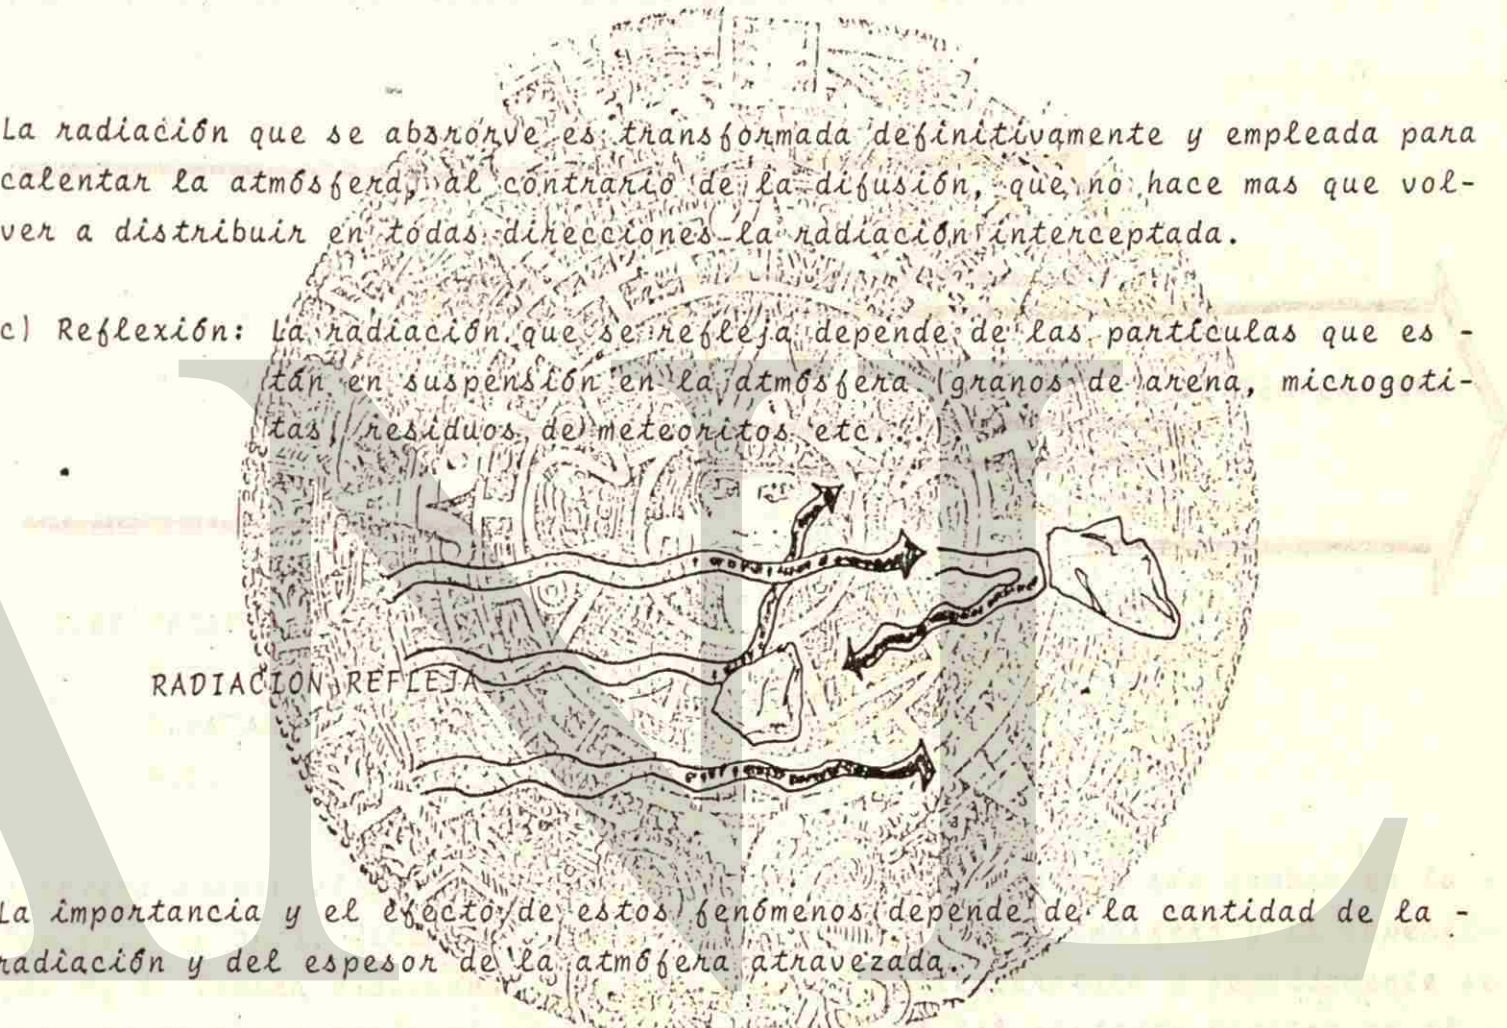 La radiación que se absrorve es transformada definitivamente y empleada para
calentar la atmósfera, al contrario de la difusión, que no hace mas que vol-
ver a distribuir en todas direcciones la radiación interceptada.
c) Reflexión: La radiación que se refleja depende de las partículas que es -
tán en suspensión en la atmósfera (granos de arena, microgoti-
tas, residuos de meteoritos etc...).
RADIACION REFLEJA
La importancia y el efecto de estos fenómenos depende de la cantidad de la -
radiación y del espesor de la atmófera atravezada.